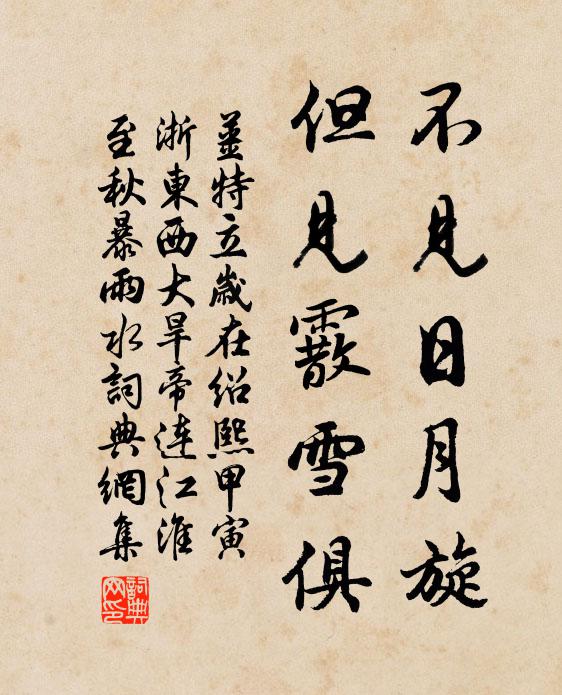 不見日月旋
但見霰雪俱
姜特立歲在紹熙甲寅
浙東西大旱帝連江淮
至秋暴雨水詞典網集
詞典
网印